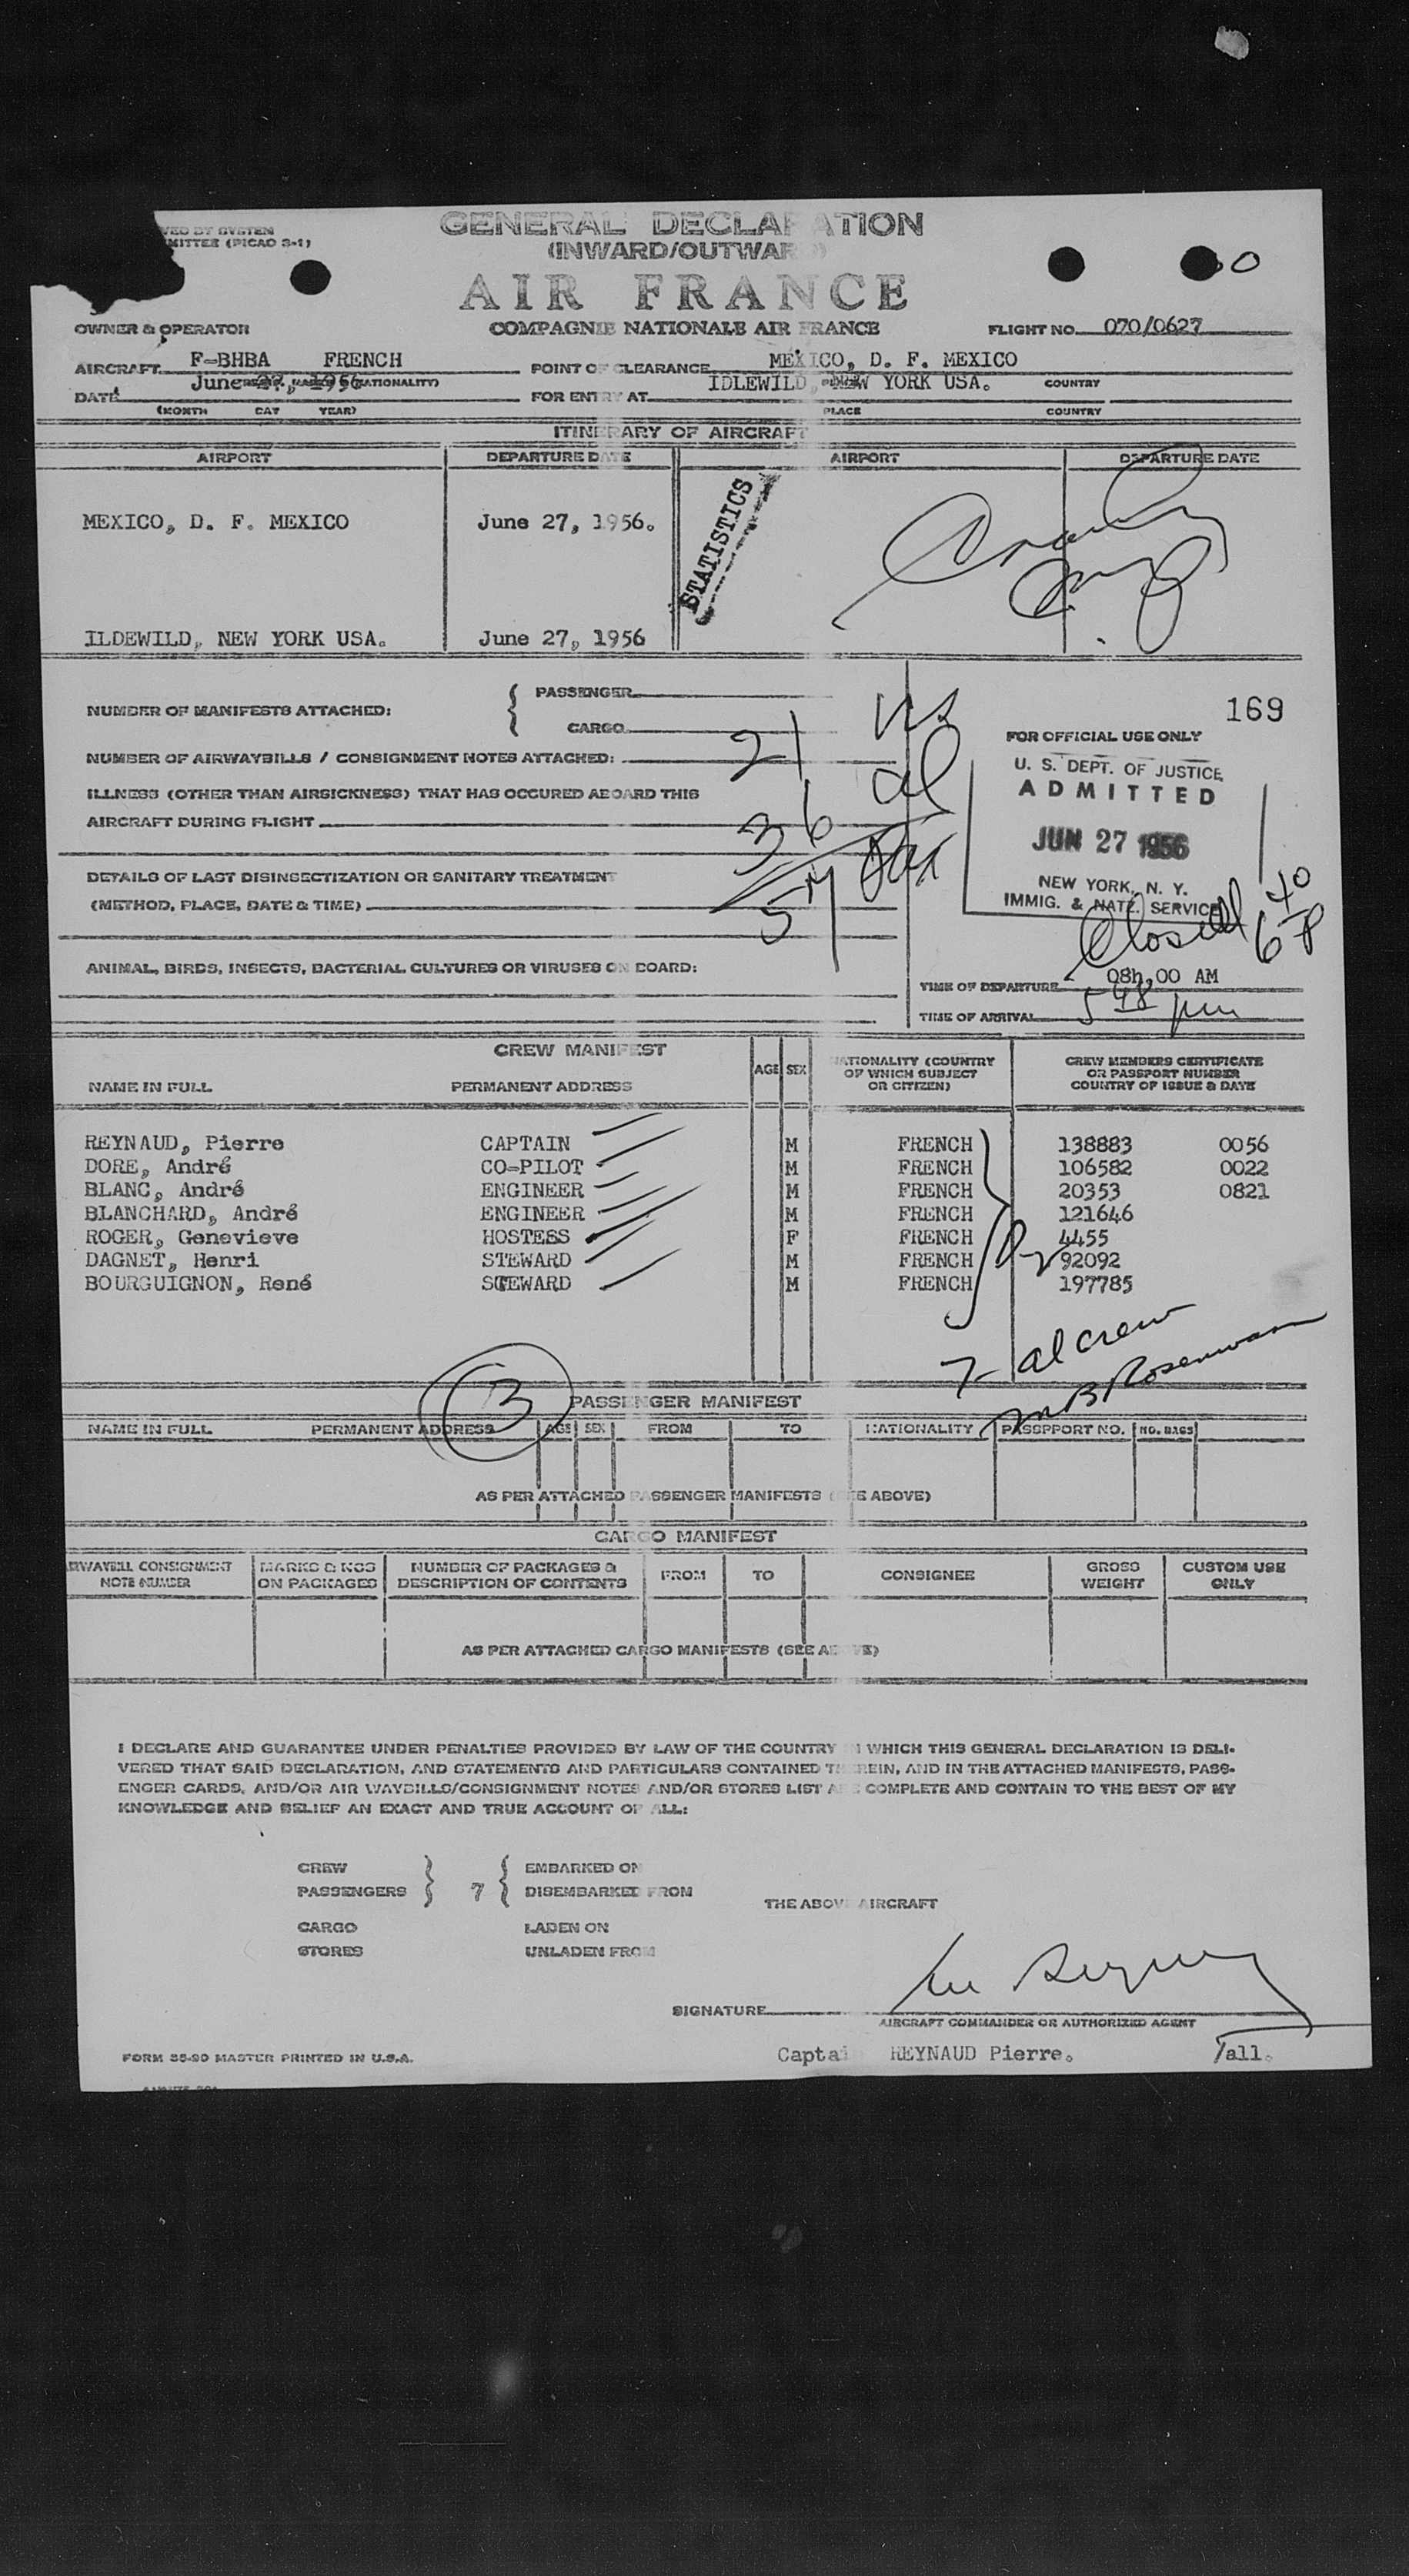 GENERAL DECLARATION
(INWARD/OUTWARD)
MITTEE (PICAO 3-1)
AIR FRANCE
COMPAGNIE NATIONALE AIR FRANCE
OWNER & OPERATOR
FLIGHT NO. 070/0627
AIRCRAFT F-BHBA FRENCH
POINT OF CLEARANCE MEXICO, D. F. MEXICO
DATE June 27, 1956
(MONTH DAY YEAR)
FOR ENTRY AT IDLEWILD, NEW YORK USA. COUNTRY
PLACE COUNTRY
ITINERARY OF AIRCRAFT
AIRPORT DEPARTURE DATE AIRPORT DEPARTURE DATE
MEXICO, D. F. MEXICO June 27, 1956.
STATISTICS
ILDEWILD, NEW YORK USA. June 27, 1956
NUMBER OF MANIFESTS ATTACHED: PASSENGER
CARGO
169
NUMBER OF AIRWAYBILLS / CONSIGNMENT NOTES ATTACHED:
21 US
36 al
57 Pax
ILLNESS (OTHER THAN AIRSICKNESS) THAT HAS OCCURED ABOARD THIS
AIRCRAFT DURING FLIGHT
DETAILS OF LAST DISINSECTIZATION OR SANITARY TREATMENT
(METHOD, PLACE, DATE & TIME)
ANIMAL, BIRDS, INSECTS, BACTERIAL CULTURES OR VIRUSES ON BOARD:
FOR OFFICIAL USE ONLY
U. S. DEPT. OF JUSTICE
ADMITTED
JUN 27 1956
NEW YORK, N. Y.
IMMIG. & NATZ. SERVICE
Closed 6 40 P
TIME OF DEPARTURE 08h,00 AM
TIME OF ARRIVAL 5 48 pm
CREW MANIFEST
NAME IN FULL PERMANENT ADDRESS AGE SEX NATIONALITY (COUNTRY OF WHICH SUBJECT OR CITIZEN) CREW MEMBERS CERTIFICATE OR PASSPORT NUMBER COUNTRY OF ISSUE & DATE
REYNAUD, Pierre CAPTAIN M FRENCH 138883 0056
DORE, André CO-PILOT M FRENCH 106582 0022
BLANC, André ENGINEER M FRENCH 20353 0821
BLANCHARD, André ENGINEER M FRENCH 121646
ROGER, Genevieve HOSTESS F FRENCH 4455
DAGNET, Henri STEWARD M FRENCH 92092
BOURGUIGNON, René STEWARD M FRENCH 197785
7- al crew
3
PASSENGER MANIFEST
NAME IN FULL PERMANENT ADDRESS AGE SEX FROM TO NATIONALITY PASSPPORT NO. NO. BAGS
AS PER ATTACHED PASSENGER MANIFESTS (SEE ABOVE)
CARGO MANIFEST
AIRWAYBILL CONSIGNMENT NOTE NUMBER MARKS & NOS ON PACKAGES NUMBER OF PACKAGES & DESCRIPTION OF CONTENTS FROM TO CONSIGNEE GROSS WEIGHT CUSTOM USE ONLY
AS PER ATTACHED CARGO MANIFESTS (SEE ABOVE)
I DECLARE AND GUARANTEE UNDER PENALTIES PROVIDED BY LAW OF THE COUNTRY IN WHICH THIS GENERAL DECLARATION IS DELI-
VERED THAT SAID DECLARATION, AND STATEMENTS AND PARTICULARS CONTAINED THEREIN, AND IN THE ATTACHED MANIFESTS, PASS-
ENGER CARDS, AND/OR AIR WAYBILLS/CONSIGNMENT NOTES AND/OR STORES LIST ARE COMPLETE AND CONTAIN TO THE BEST OF MY
KNOWLEDGE AND BELIEF AN EXACT AND TRUE ACCOUNT OF ALL:
CREW EMBARKED ON
PASSENGERS 7 DISEMBARKED FROM
THE ABOVE AIRCRAFT
CARGO LADEN ON
STORES UNLADEN FROM
SIGNATURE
AIRCRAFT COMMANDER OR AUTHORIZED AGENT
FORM 35-90 MASTER PRINTED IN U.S.A.
Captain REYNAUD Pierre. /all.